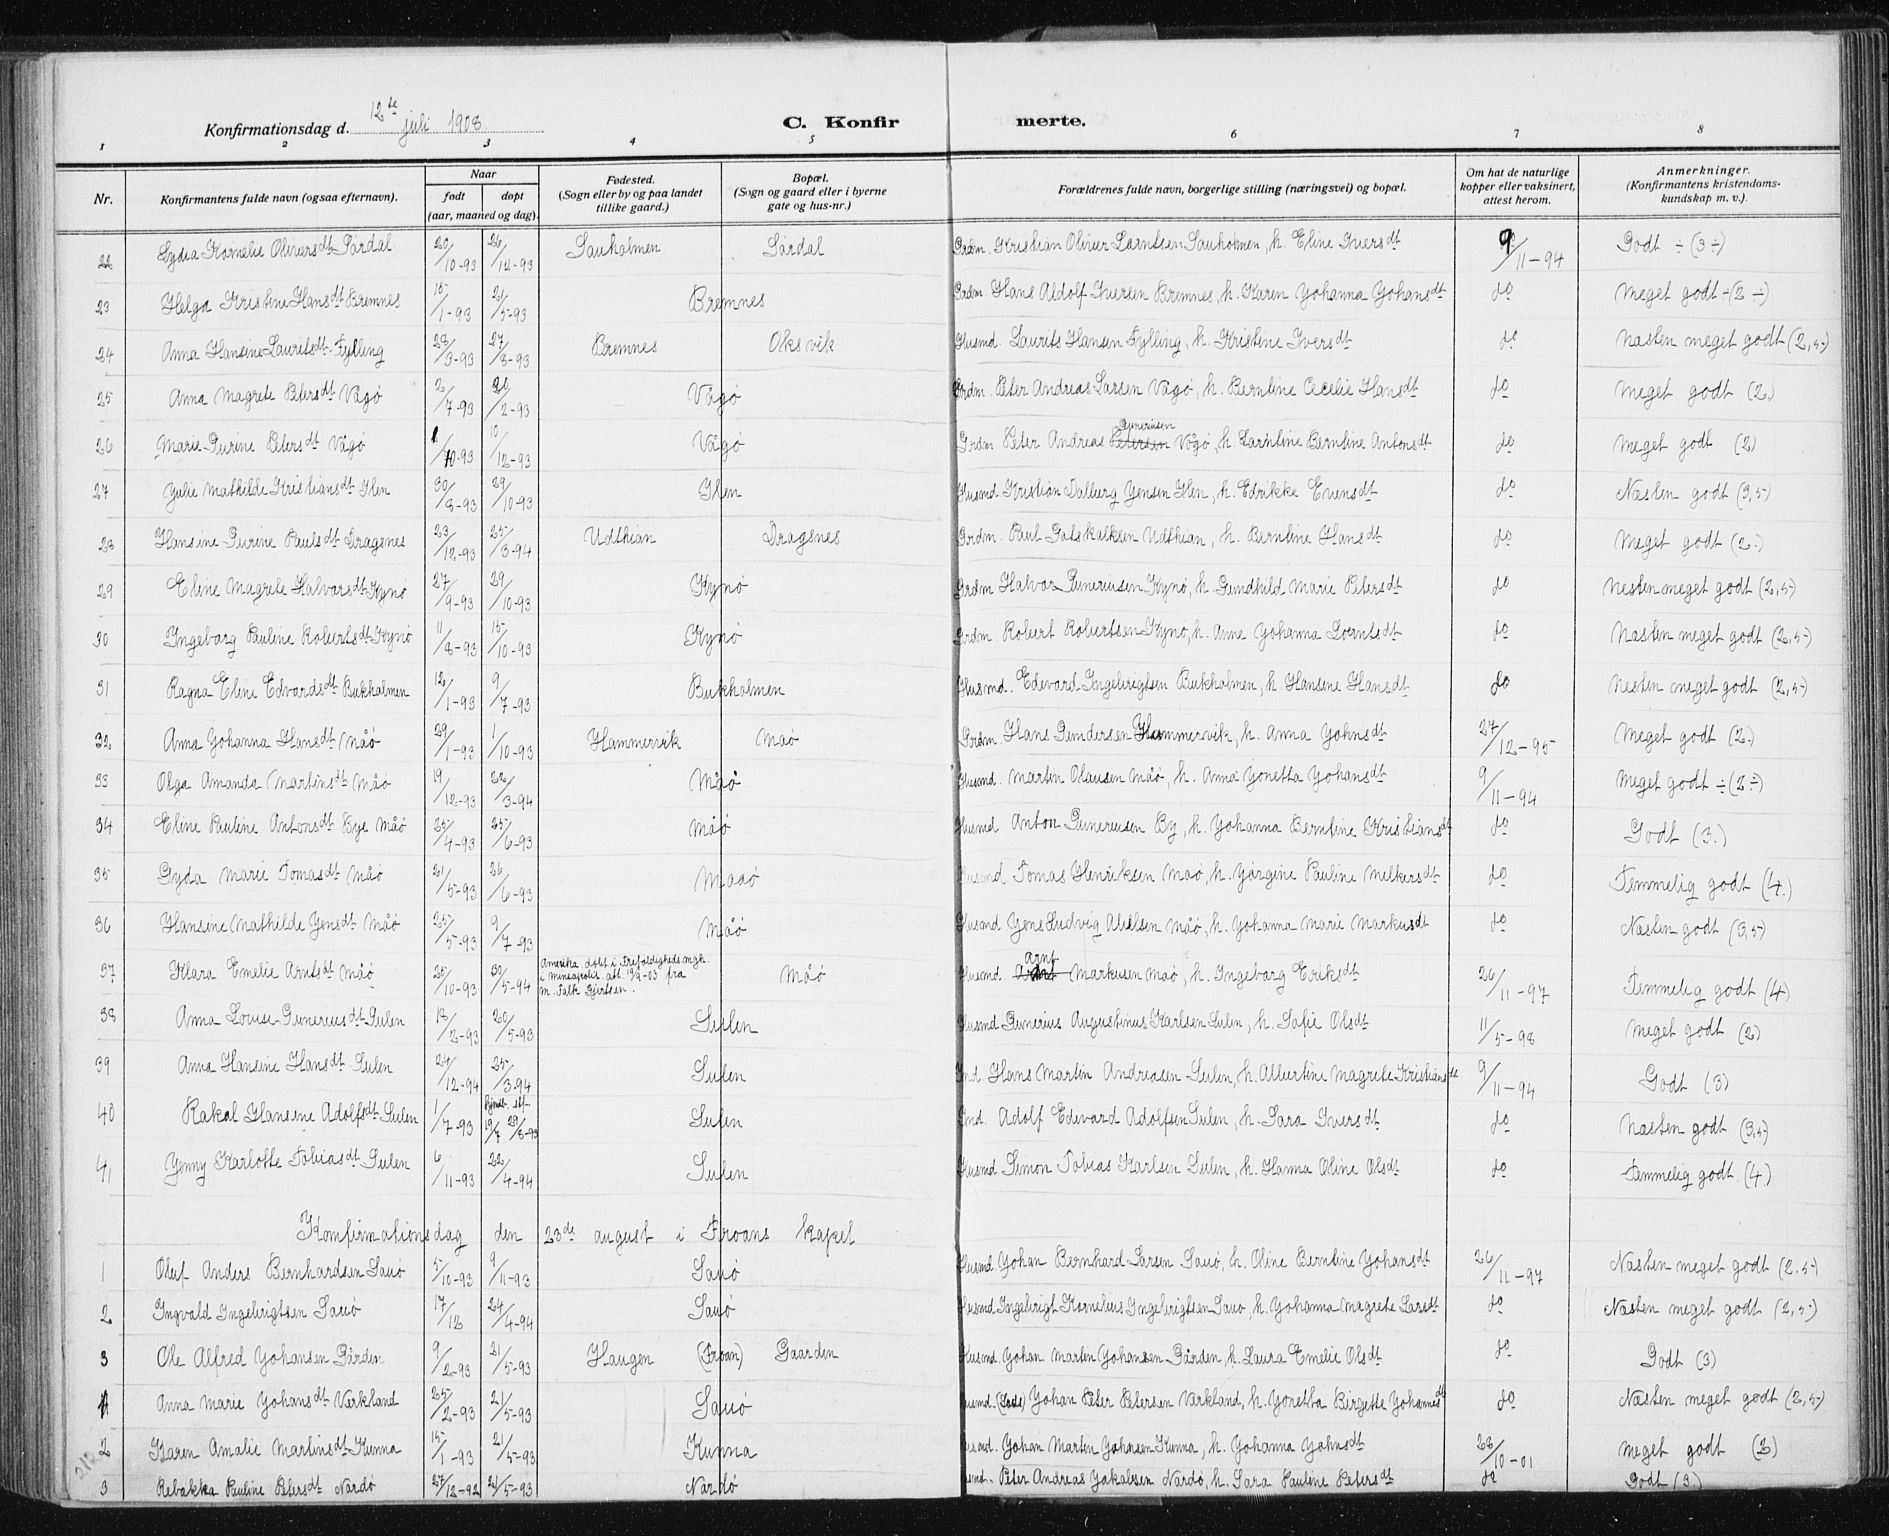 Konfirmationsdag d. 12te juli 1908. C. Konfirmerte.
1 2 3 4 5 6 7 8
Nr. Konfirmantens fulde navn (ogsaa efternavn). Naar født døpt (aar, maaned og dag). Fødested. (Sogn eller by og paa landet tillike gaard.) Bopæl. (Sogn og gaard eller i byerne gate og hus-nr.) Forældrenes fulde navn, borgerlige stilling (næringsvei) og bopæl. Om hat de naturlige kopper eller vaksinert, attest herom. Anmerkninger. (Konfirmantens kristendoms-kundskap m. v.).
22 Lydia Kornelie Oliversdt Sørdal 20/10-93 26/12-93 Sauholmen Sørdal Grdm. Kristian Oliver Larntsen Sauholmen, h. Eline Iversdt 9/11-94 Godt ÷ (3÷)
23 Helga Kristine Hansdt Bremnes 15/1-93 21/5-93 Bremnes Grdm. Hans Adolf Iversen Bremnes, h. Karen Yohanna Yohansdt do Meget godt ÷ (2÷)
24 Anna Hansine Lauritsdt Fylling 28/3-93 27/8-93 Bremnes Oksvik Husmd. Laurits Hansen Fylling, h. Kristine Iversdt do Næsten meget godt (2,5)
25 Anna Magrete Petersdt Vågø 2/7-93 20/2-93 Vågø Grdm. Peter Andreas Larsen Vågø, h. Berntine Cecelie Hansdt do Meget godt (2.)
26 Marie Gurine Petersdt Vågø 1/10-93 10/12-93 Vågø Grdm Peter Andreas Petersen Guneriusen Vågø, h. Larntine Berntine Antonsdt do Meget godt (2)
27 Yulie Mathilde Kristiansdt Ilen 30/8-93 29/10-93 Ilen Husmd Kristian Dalburg Yensen Ilen, h. Edrikke Evensdt do Næsten godt (3,5)
28 Hansine Gurine Paulsdt Dragsnes 23/12-93 25/3-94 Udthian Dragsnes Grdm. Paul Gotskalksen Udthian, h. Berntine Hansdt do Meget godt (2.)
29 Eline Magrete Halvarsdt Kynø 27/9-93 29/10-93 Kynø Grdm Halvar Guneriusen Kynø, h. Gundhild Marie Petersdt do Nesten meget godt (2,5)
30 Ingeborg Pauline Robertsdt Kynø 11/8-93 15/10-93 Kynø Grdm. Robert Robertsen Kynø, h. Anne Yohanna Lorntsdt do Næsten meget godt (2,5)
31 Ragna Eline Edvardsdt Bukholmen 12/1-93 9/7-93 Bukholmen Husmd. Edevard Ingebrigtsen Bukholmen, h. Hansine Hansdt do Nesten meget godt (2,5)
32 Anna Yohanna Hansdt Måø 29/1-93 1/10-93 Hammervik Maø Grdm. Hans Gundersen Hammervik, h. Anna Yohnsdt 27/12-95 Meget godt (2.)
33 Olga Amanda Martinsdt Måø 19/12-93 22/3-94 Måø Husmd. Martin Olausen Måø, h. Anna Yonetta Yohansdt 9/11-94 Meget godt ÷ (2÷)
34 Eline Pauline Antonsdt Bye Måø 25/4-93 25/6-93 Måø Husmd Anton Guneriusen By, h. Yohanna Berntine Kristiansdt do Godt (3.)
35 Gyda Marie Tomasdt Måø 21/5-93 26/6-93 Maaø Husmd Tomas Henriksen Maø, h. Yørgine Pauline Melkersdt do Temmelig godt (4.)
36 Hansine Mathilde Yensdt Måø 25/5-93 9/7-93 Måø Husmd Yens Ludvig Abelsen Måø, h. Yohanna Marie Markusdt do Næsten godt (3,5)
37 Klara Emelie Arntsdt Måø 25/10-93 30/5-94 Amerika døbt i Trefoldigheds mgh. i Mineapolis att. 19/2-03 fra M. Falk Gjertsen. Måø Husmd. Arnt Markusen Maø, h. Ingeborg Eriksdt 26/11-97 Temmelig godt (4)
38 Anna Lovise Guneriusdt Sulen 18/2-93 20/5-93 Sulen Husmd Gunerius Augustinus Karlsen Sulen, h. Sofie Olsdt 11/5-98 Meget godt (2)
39 Anna Hansine Hansdt Sulen 24/12-94 25/3-94 Sulen Ind Hans Martin Andreasen Sulen, h. Albertine Magrete Kristiansdt 9/11-94 Godt (3)
40 Rakel Hansine Adolfsdt Sulen 1/7-93 hjmdb. 19/7 stf. 29/8-93 Sulen Ind. Adolf Edevard Adolfsen Sulen, h. Sara Iversdt do Næsten godt (3,5)
41 Yenny Karlotte Tobiasdt Sulen 6/11-93 22/4-94 Sulen Husmd Simon Tobias Karlsen Sulen, h. Hanna Oline Olsdt do Temmelig godt. (4.)
Konfirmationsdag den 23de august i Froans kapel
1 Oluf Anders Bernhardsen Sauø 5/10-93 9/11-93 Sauø Husmd Yohan Bernhard Larsen Sauø, h. Oline Berntine Yohansdt 26/11-97 Næsten meget godt (2,5)
2 Ingvald Ingebrigtsen Sauø 17/12 24/4-94 Sauø Husmd Ingebrigt Kornelius Ingebrigtsen Sauø h. Yohanna Magrete Larsdt do Næsten meget godt (2,5)
3 Ole Alfred Yohansen Gården 9/2-93 21/5-93 Haugen (Froan) Gaarden Husmd Yohan Martin Yohansen Gården, h. Laura Emelie Olsdt do Godt (3)
1 Anna Marie Yohansdt Verkland 25/2-93 21/5-93 Sauø Husmd. (Lods) Yohan Peter Petersen Verkland, h. Yonetta Birgette Yohannesdt do Næsten meget godt (2,5)
2 Karen Amalie Martinsdt Kunna 15/1-93 21/5-93 Kunna Husmd. Yohan Martin Yohnsen Kunna, h. Yohanna Yohnsdt 28/10-01 Meget godt (2)
3 Rebakka Pauline Petersdt Nordø 27/12-92 21/5-93 Nordø Husmd. Peter Andreas Yakobsen Nordø, h. Sara Pauline Petersdt do Godt (3.)